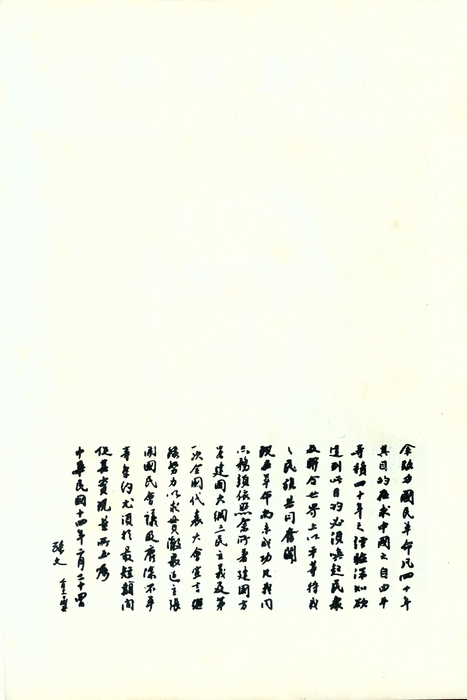 余致力國民革命凡四十年
其目的在求中國之自由平
等積四十年之經驗深知欲
達到此目的必須喚起民衆
及聯合世界上以平等待我
之民族共同奮鬥
現在革命尚未成功凡我同
志務須依照余所著建國方
畧建國大綱三民主義及第
一次全國代表大會宣言繼
續努力以求貫澈最近主張
開國民會議及廢除不平
等條約尤須於最短期間
促其實現是所至囑
中華民國十四年二月二十四日
孫文